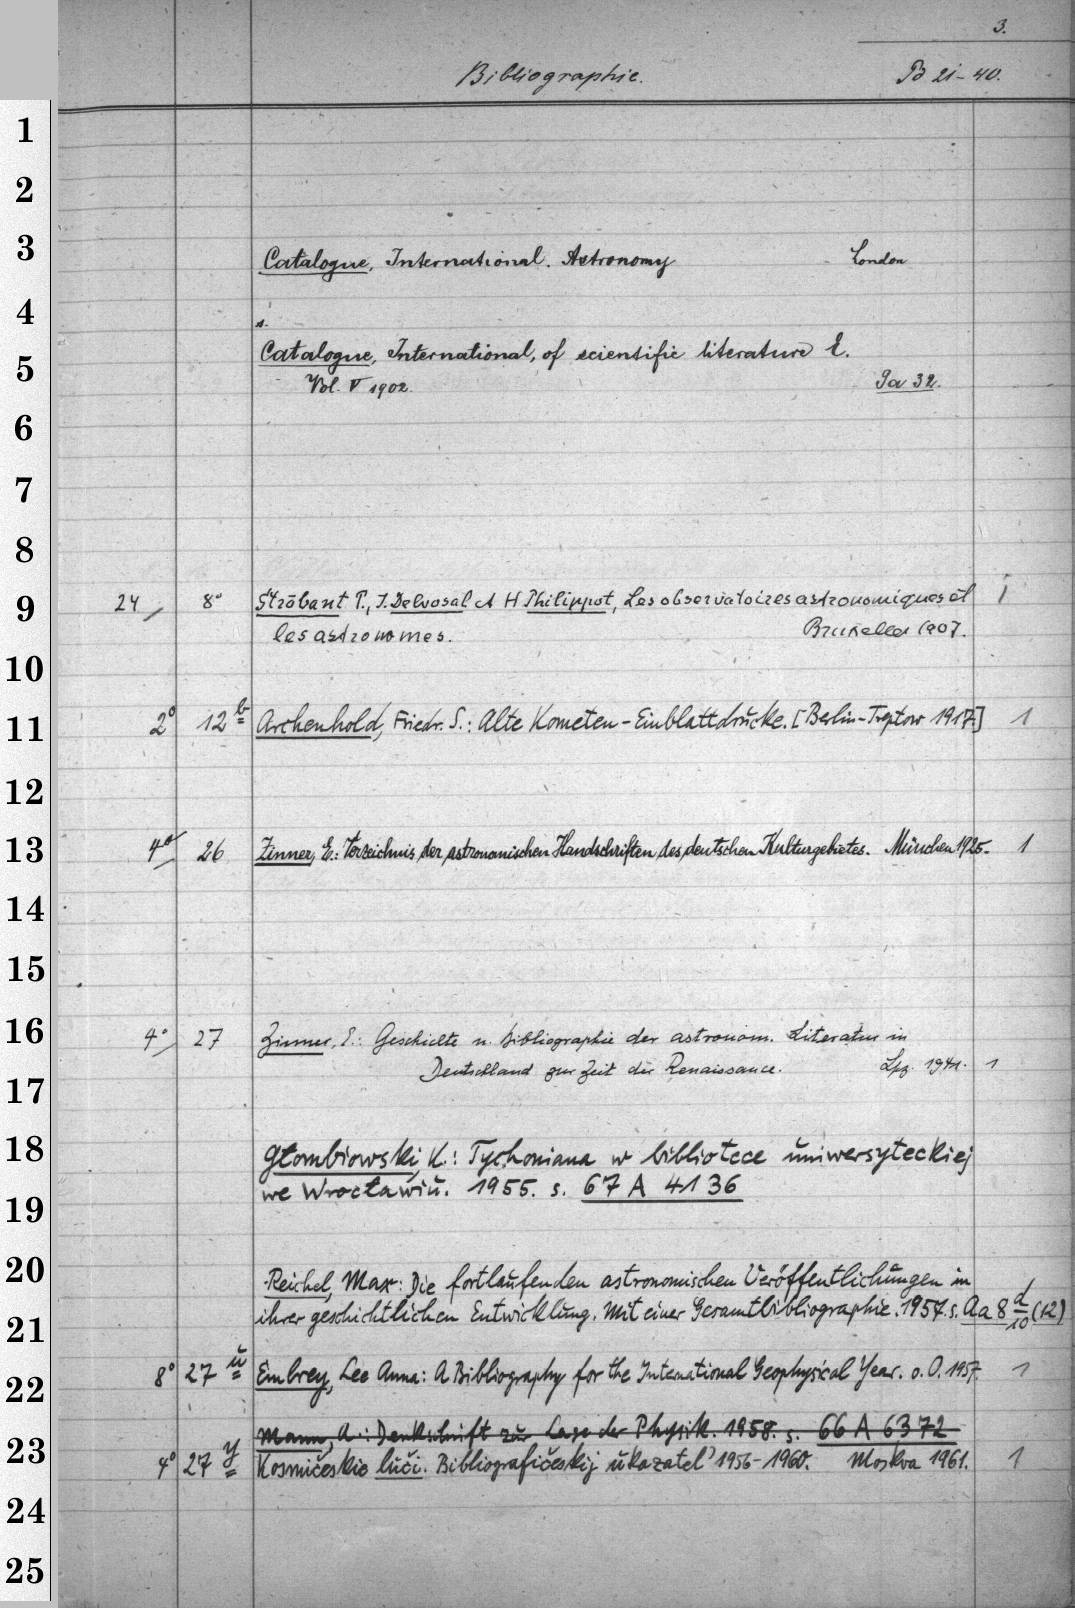 3.
Bibliographie. B 21-40.
1
2
3 Catalogue, International. Astronomy London
4 s.
5 Catalogue, International, of scientific literature E.
Vol. V 1902. Ja 32.
6
7
8
9 24 8° Strobant P., J. Delvosal A H Philippot, Les observatoires astronomiques et 1
les astronomes. Bruxelles 1907.
10
11 2° 12 b Archenhold, Friedr. S.: Alte Kometen-Einblattdrucke. [Berlin-Treptow 1917] 1
12
13 4° 26 Zinner, E.: Verzeichnis der astronomischen Handschriften des deutschen Kulturgebietes. München 1925. 1
14
15
16 4° 27 Zinner, E.: Geschichte u. Bibliographie der astronom. Literatur in
17 Deutschland zur Zeit der Renaissance. Lpz. 1941. 1
18 Głombiowski, K.: Tychoniana w bibliotece uniwersyteckiej
19 we Wrocławiu. 1955. s. 67 A 4136
20 Reichel, Max: Die fortlaufenden astronomischen Veröffentlichungen in
21 ihrer geschichtlichen Entwicklung. Mit einer Gesamtbibliographie. 1957. s. Aa 8 d/10 (12)
22 8° 27 u Embrey, Lee Anna: A Bibliography for the International Geophysical Year. o. O. 1957. 1
Mann, A.: Denkschrift zur Lage der Physik. 1958. s. 66 A 6372
23 4° 27 y Kosmičeskie luči. Bibliografičeskij ukazatel' 1956-1960. Moskva 1961. 1
24
25